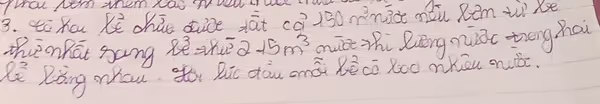 3. có hai bể chứa được tất cả 150 m³ nước nếu bơm từ bể
thứ nhất sang bể thứ 2 15 m³ nước thì lượng nước trong hai
bể bằng nhau. Hỏi lúc đầu mỗi bể có bao nhiêu nước.